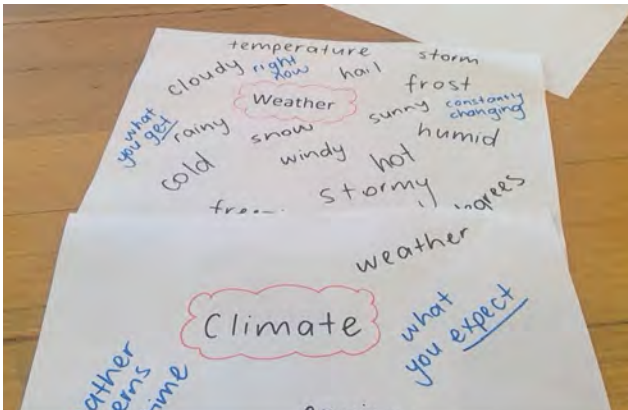 temperature
storm
cloudy
right
now
hail
frost
Weather
sunny
constantly
changing
what
you get
rainy
snow
humid
cold
windy
hot
stormy
weather
Climate
what
you expect